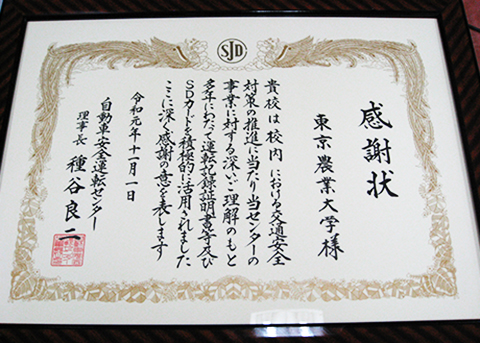 SJD
感謝状
東京農業大学様
貴校は校内における交通安全
対策の推進に当たり当センターの
事業に対する深いご理解のもと
多年にわたって運転記録証明書等及び
SDカードを積極的に活用されました
ここに深く感謝の意を表します
令和元年十一月一日
自動車安全運転センター
理事長 種谷良二